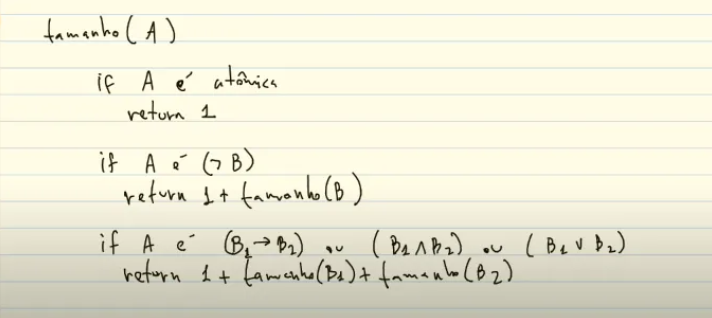 tamanho(A)
if A é atômica
return 1
if A é (¬B)
return 1 + tamanho(B)
if A é (B₁→B₂) ou (B₁∧B₂) ou (B₁∨B₂)
return 1 + tamanho(B₁) + tamanho(B₂)